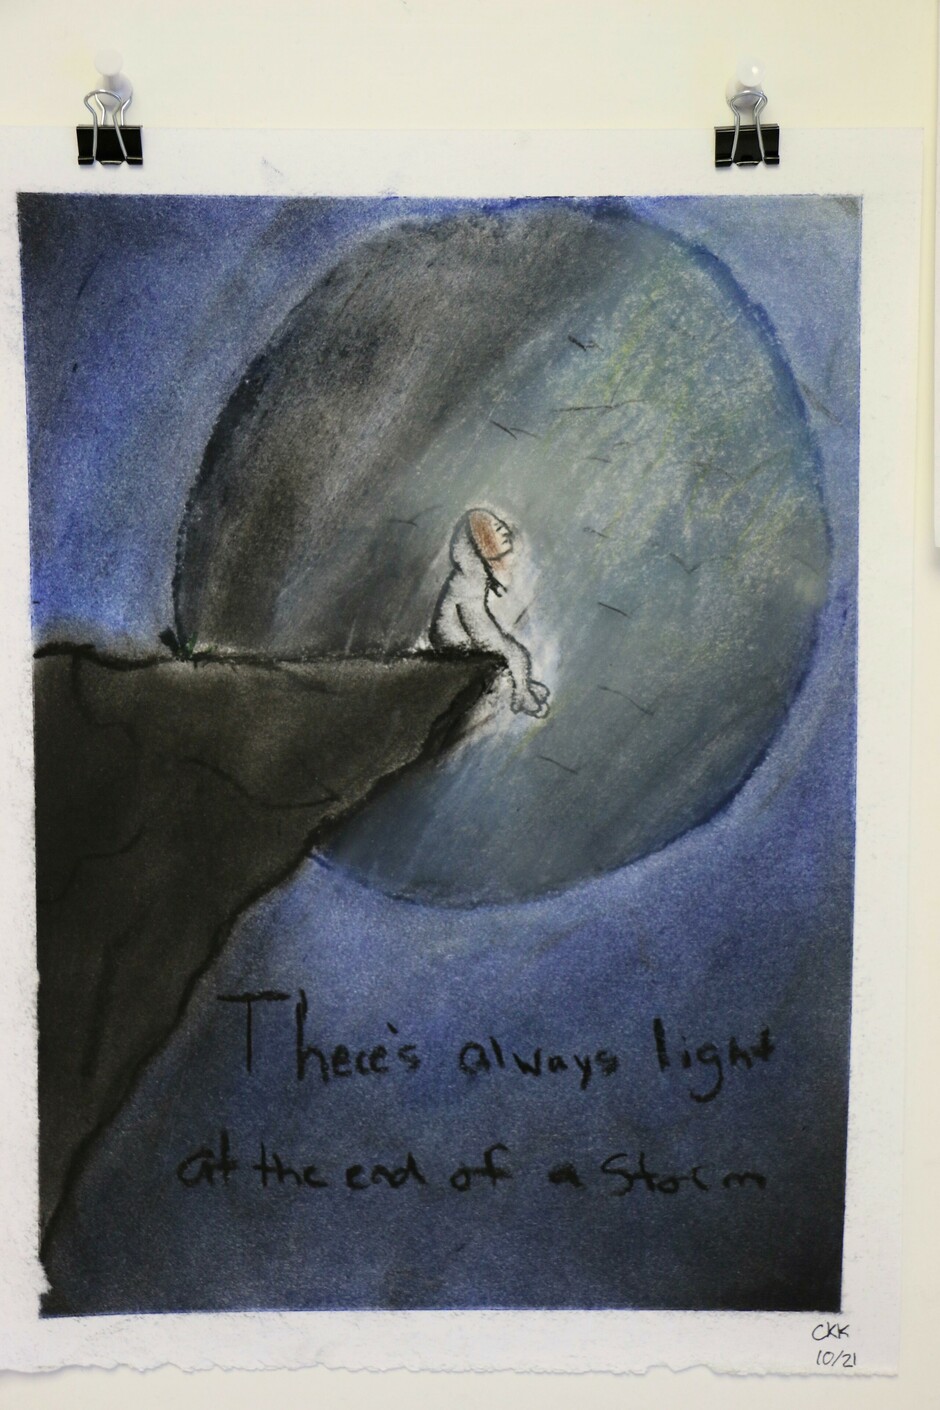 There's always light
at the end of a Storm
CKK
10/21